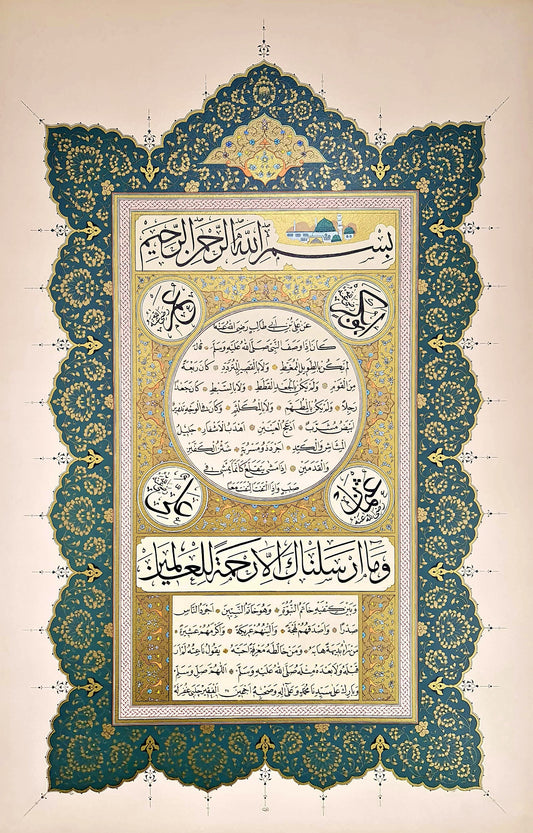 بسم الله الرحمن الرحيم
ابوبكر رضي الله عنه
عمر رضي الله عنه
عن علي بن ابي طالب رضي الله عنه
كان اذا وصف النبي صلى الله عليه وسلم قال
لم يكن بالطويل الممغط ولا بالقصير المتردد كان ربعة
من القوم ولم يكن بالجعد القطط ولا بالسبط كان جعدا
رجلا ولم يكن بالمطهم ولا بالمكلثم وكان في الوجه تدوير
ابيض مشرب ادعج العينين اهدب الاشفار جليل
المشاش والكتد اجرد ذو مسربة شثن الكفين
والقدمين اذا مشى يتقلع كانما يمشي في
صبب واذا التفت التفت معا
عثمان رضي الله عنه
علي رضي الله عنه
وما ارسلناك الا رحمة للعالمين
وبين كتفيه خاتم النبوة وهو خاتم النبيين اجود الناس
صدرا واصدقهم لهجة والينهم عريكة واكرمهم عشيرة
من رآه بديهة هابه ومن خالطه معرفة احبه يقول ناعته لم ار
قبله ولا بعده مثله صلى الله عليه وسلم اللهم صل وسلم
وبارك على سيدنا محمد وعلى آله وصحبه اجمعين